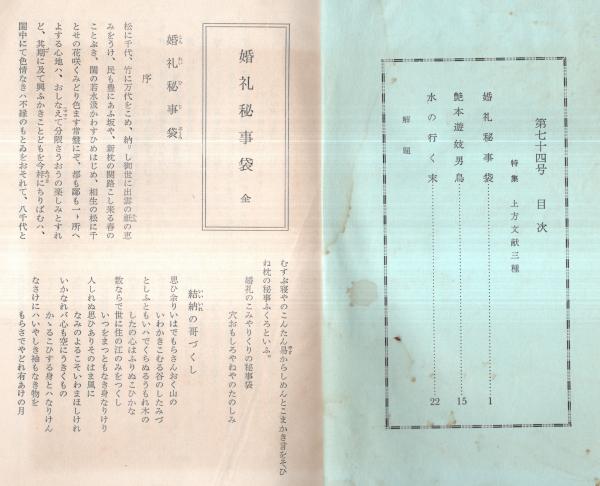 第七十四号 目次
特集 上方文献三種
婚礼秘事袋 1
艶本遊妓男鳥 15
水の行く末 22
解題
婚礼秘事袋 全
婚礼秘事袋
序
松に千代、竹に万代をこめ、納りし御世に出雲の紙の恵
みをうけ、民も豊にあふ坂や、新枕の関路こし来る春の
ことぶき、閨の若水汲かわすひめはじめ、相生の松に千
とせの花咲くみどり色ます常盤にぞ、都も鄙も一ト所へ
よする心地ハ、おしなえて分限さうおうの楽しみとすれ
ど、其期に及て興ふかきことどもを今梓にちりばむハ、
閨中にて色情なきハ不縁のもとゐをおそれて、八千代と
むすぶ寝やのこんたん易からしめんとこまかき言をそひ
ね枕の秘事ふくろといふ。
婚礼のこみやりくりの秘事袋
穴おもしろやねやのたのしみ
結納の哥づくし
思ひ余りいはでもらさんおく山の
いわかきこむる谷のしたみづ
としふともいハでくちぬるうもれ木の
したの心はふりぬこひかな
数ならで世に住の江のみをつくし
いつをまつともなき身なりけり
人しれぬ思ひありそのはま風に
なみのよるこそいわまほしけれ
いかなれバ心も空にうきくもの
かゝるこひする身とハなりけん
なさけにハいやしき袖もなき物を
もらさでやどれ有あけの月